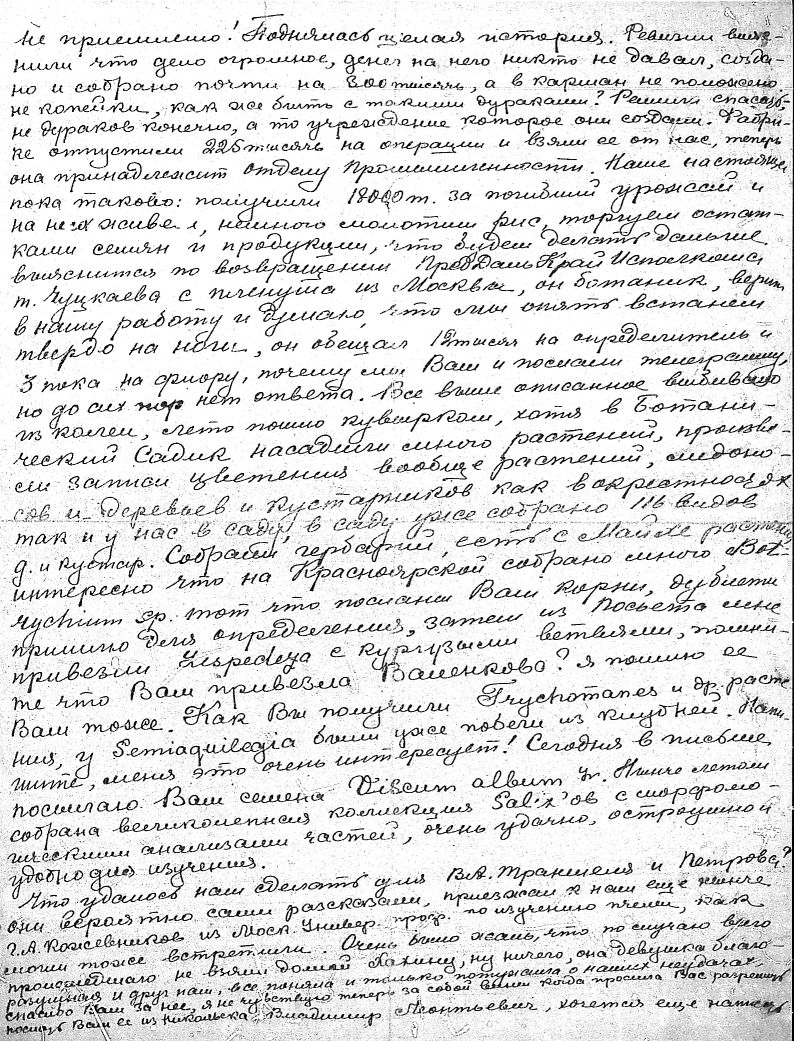 не приемлемо! Поднялась целая история. Ревизии выяс-
нили что дело огромное, денег на него никто не давал, созда-
но и собрано почти на 300 тысячь, а в карман не положено
не копейки, как же быть с такими дураками? Решили спасать
не дураков конечно, а то учреждение которое они создали. Фабри-
ке отпустили 225 тысячь на операции и взяли ее от нас, теперь
она принадлежит отделу Промышленности. Наше настоящее
пока таково: получили 18000 т. за погибший урожай и
на них живем, немного молотим рис, торгуем остат-
ками семян и продукции, что будем делать дальше
выяснится по возвращении Пред.ДальКрайИсполкома
т. Чуцкаева с пленума из Москвы, он ботаник, верит
в нашу работу и думаю, что мы опять встанем
твердо на ноги, он обещал 12 тысяч на определитель и
3 пока на флору, почему мы Вам и послали телеграмму,
но до сих пор нет ответа. Все выше описанное выбивало
из колеи, лето пошло кувырком, хотя в Ботани-
ческий Садик насадили много растений, произве-
ли записи цветения вообще растений, медоно-
сов и деревьев и кустарников как в окрестностях
так и у нас в саду, в саду уже собрано 116 видов
д. и кустар. Собрали гербарий, есть с Майхе растения,
интересно что на Красноярской собрано много Bot-
rychium sp. тот что послали Вам корни, дублеты
пришлю для определения, затем из Посьета мне
привезли Lespedeza с кургузыми ветвями, помни-
те что Вам привезла Васенкова? я пошлю ее
Вам тоже. Как Вы получили Trychomanes и др. расте-
ния, у Semiaquilegia были уже побеги из клубней. Напи-
шите, меня это очень интересует! Сегодня в письме
посылаю Вам семена Viscum album L. Нынче летом
собрана великолепная коллекция Salix'ов с морфоло-
гическими анализами частей, очень удачно, остроумно и
удобно для изучения.
Что удалось нам сделать для В.А. Траншеля и Петрова?
они вероятно сами рассказали, приезжал к нам еще нынче
Г.А. Кожевников из Моск. Универ. проф. по изучению пчелы, как
могли тоже встретили. Очень было жаль, что по случаю всего
происшедшего не взяли домой Ханину, ну ничего, она девушка благо-
разумная и друг наш, все поняла и только потужила о наших неудачах,
спасибо Вам за нее, я не чувствую теперь за собой вины когда просила Вас разрешить
послать Вам ее из Никольска. Владимир Леонтьевич, хочется еще написать